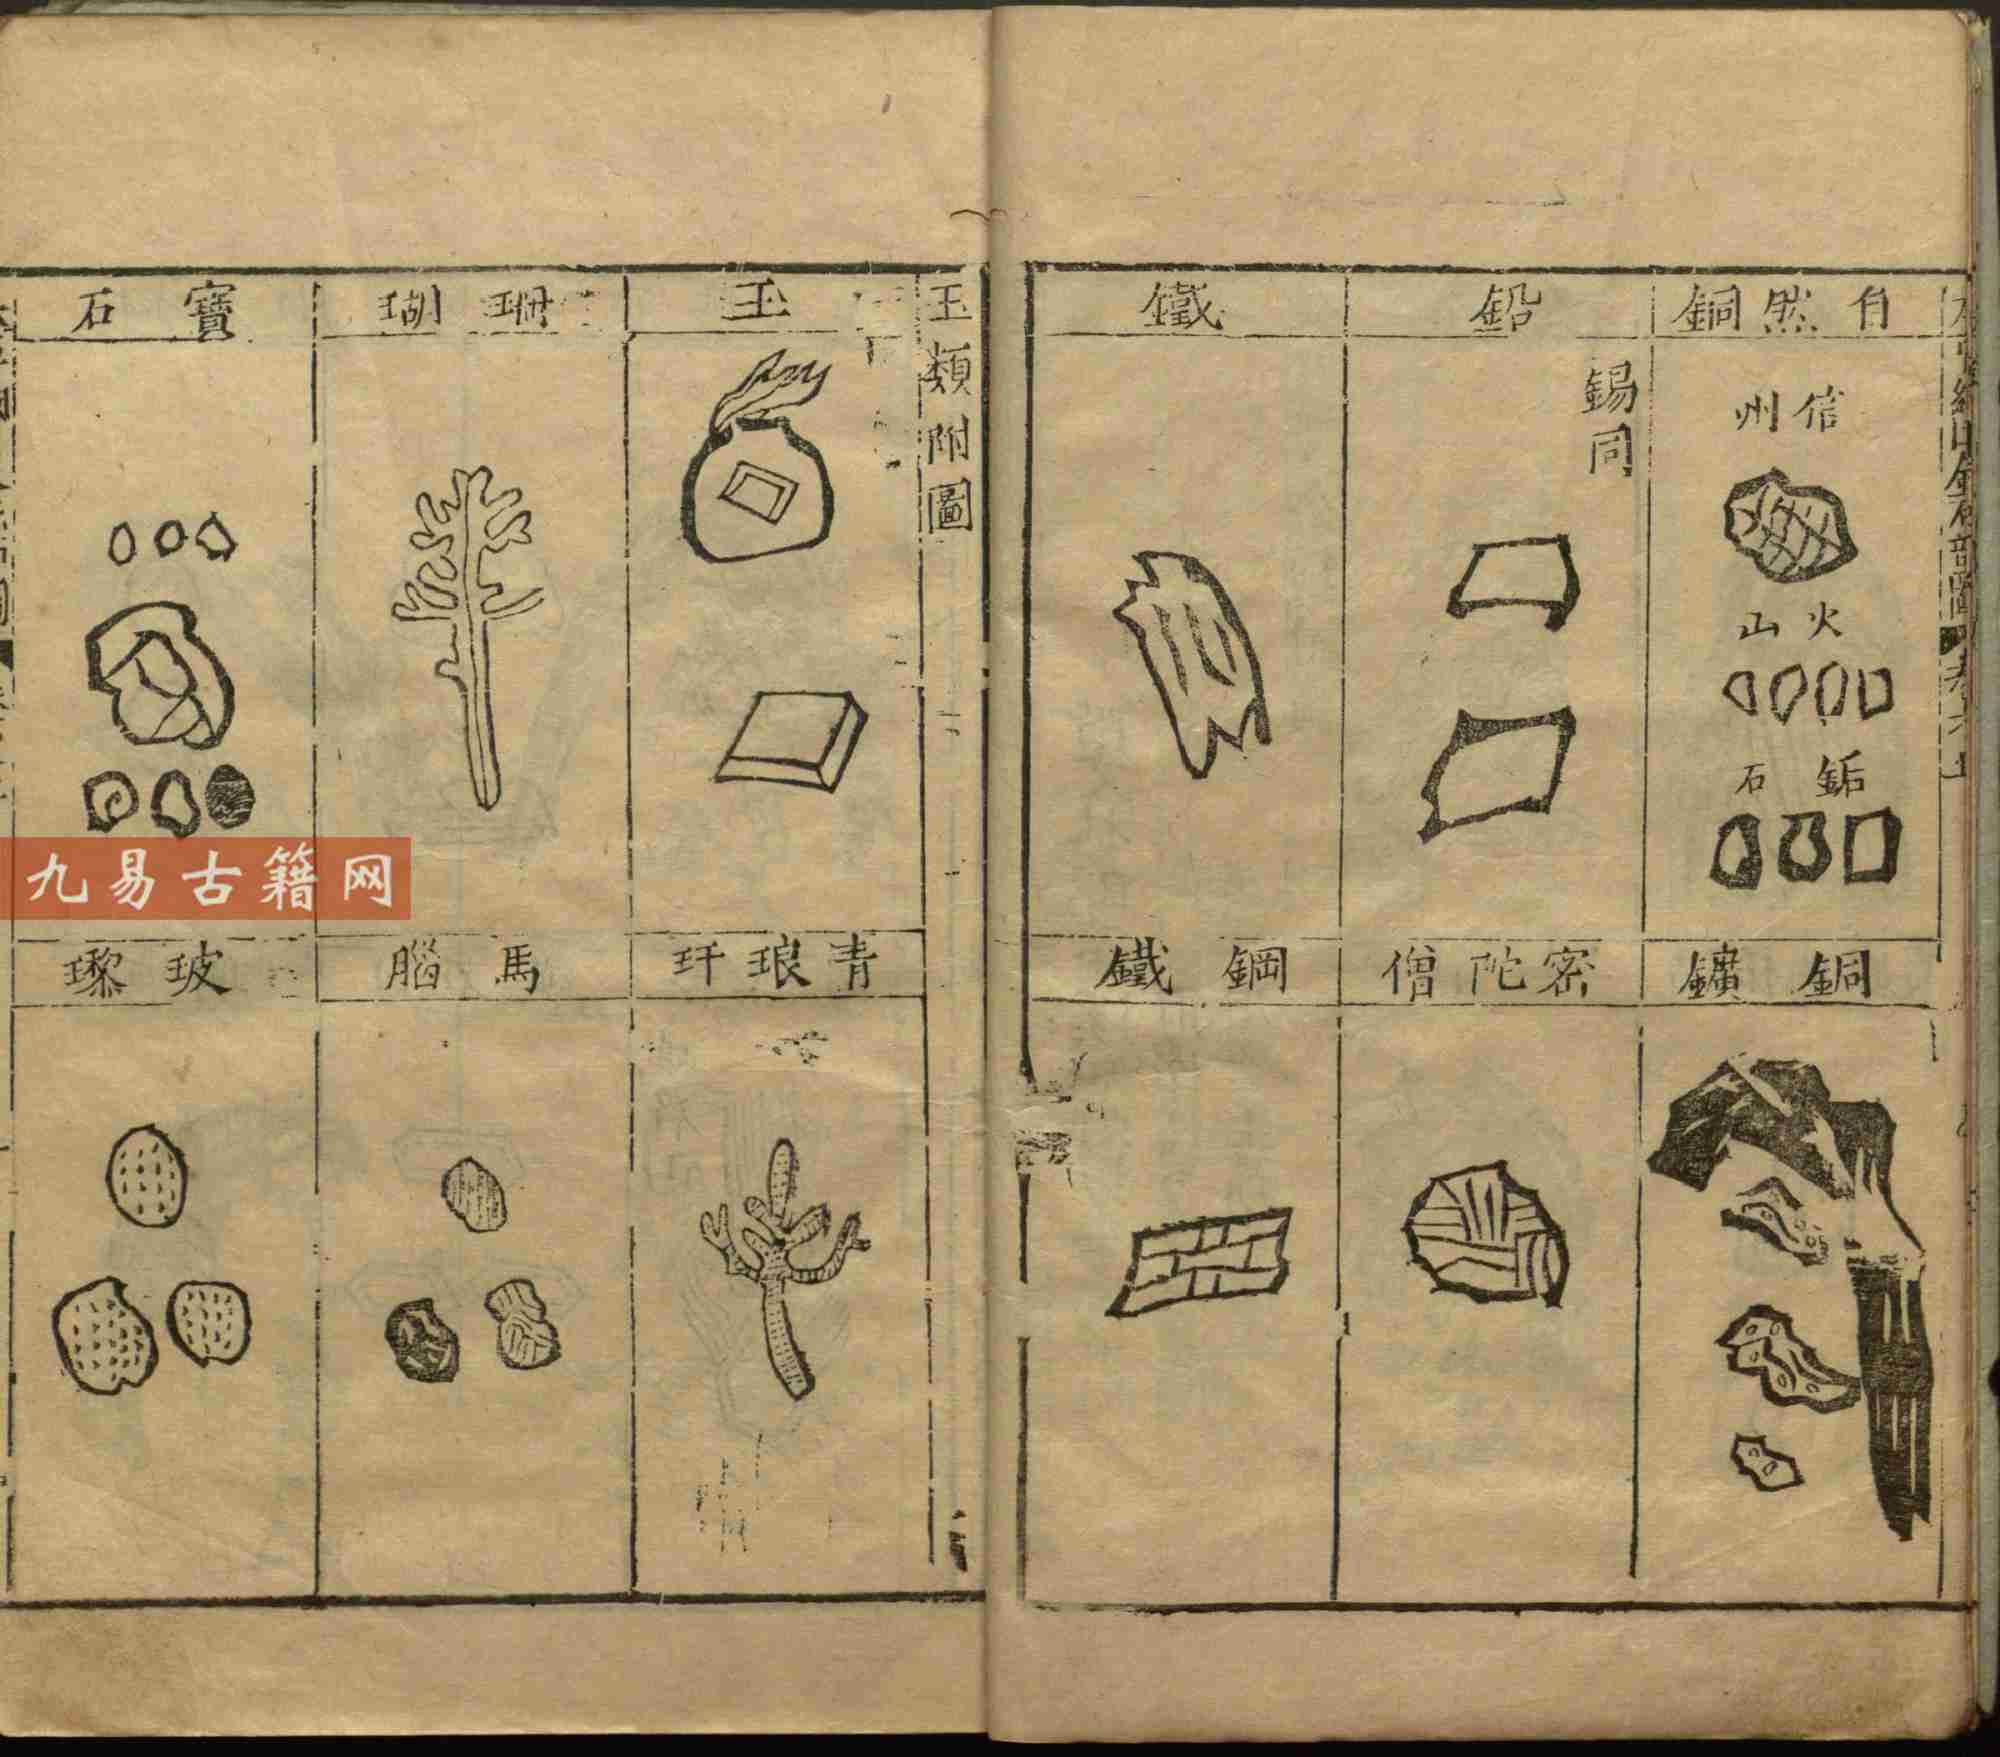 自然銅
信州
火山
鉐石
鉛
錫同
鐵
銅鑛
密陀僧
鋼鐵
玉類附圖
玉
珊瑚
寶石
青琅玕
馬腦
玻瓈
九易古籍网